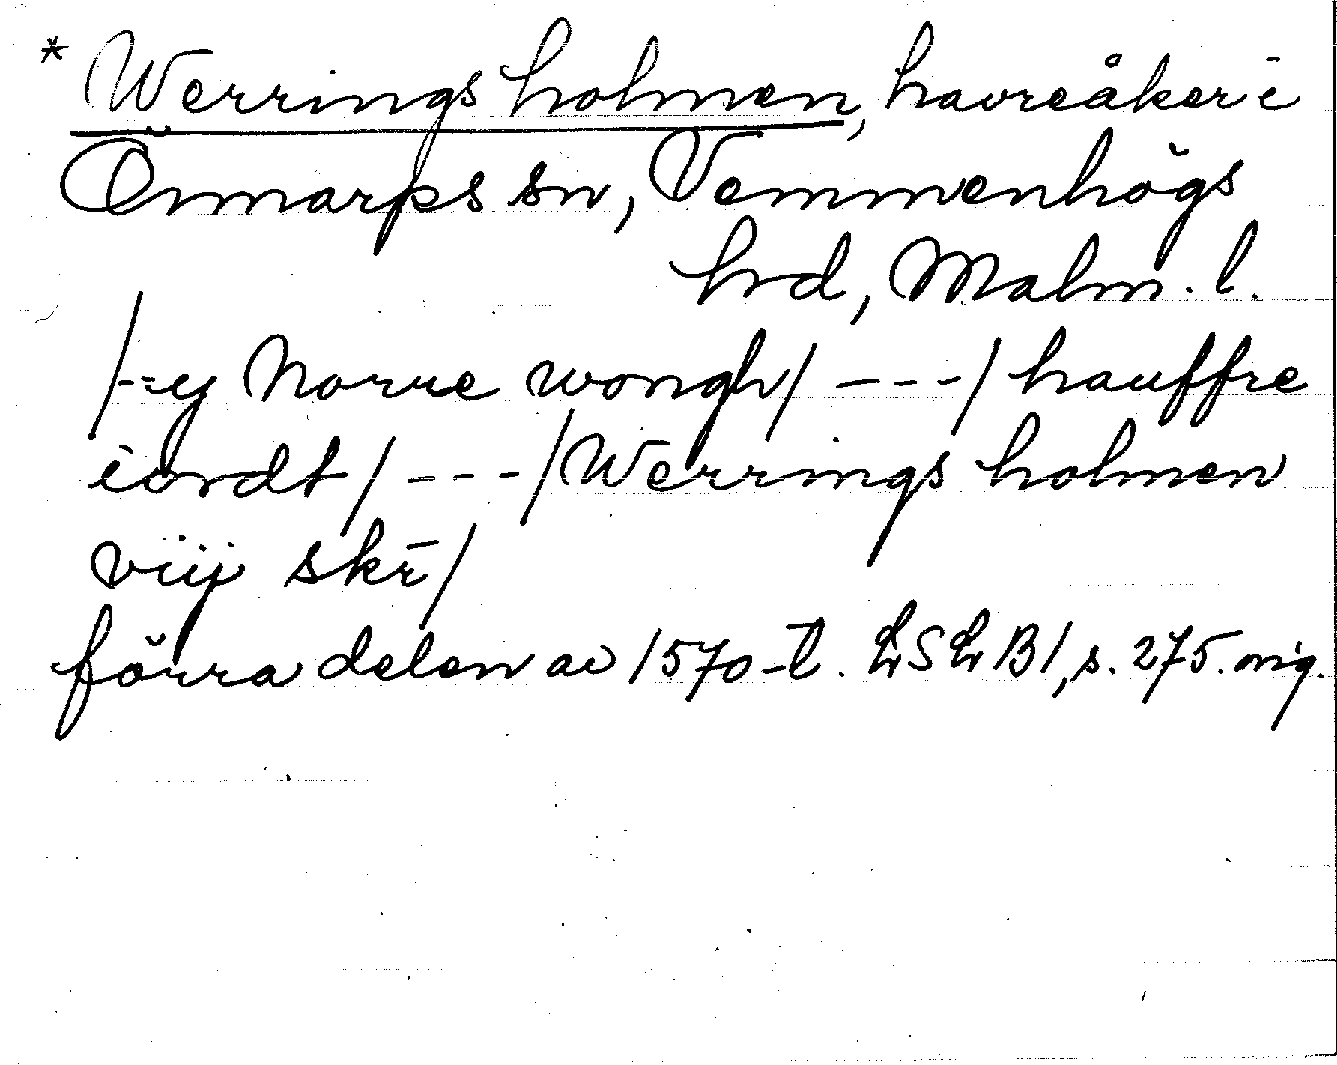 * Werrings holmen, havreåker i
Önnarps sn, Vemmenhögs
hrd, Malm. l.
/--y Norre wongh/ ---/ hauffre
iordt/ ---/ Werrings holmen
viij skr̄/
förra delen av 1570-t. LSLB1, s. 275. orig.